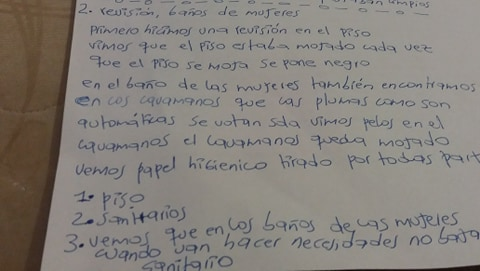 limpios
2. revisión, baños de mujeres
primero hicimos una revisión en el piso
vimos que el piso estaba mojado cada vez
que el piso se moja se pone negro
en el baño de las mujeres también encontramos
en los lavamanos que las plumas como son
automáticas se votan sola vimos pelos en el
lavamanos el lavamanos queda mojado
vemos papel higienico tirado por todas part
1. piso
2. sanitarios
3. vemos que en los baños de las mujeres
cuando van hacer necesidades no baja
sanitario